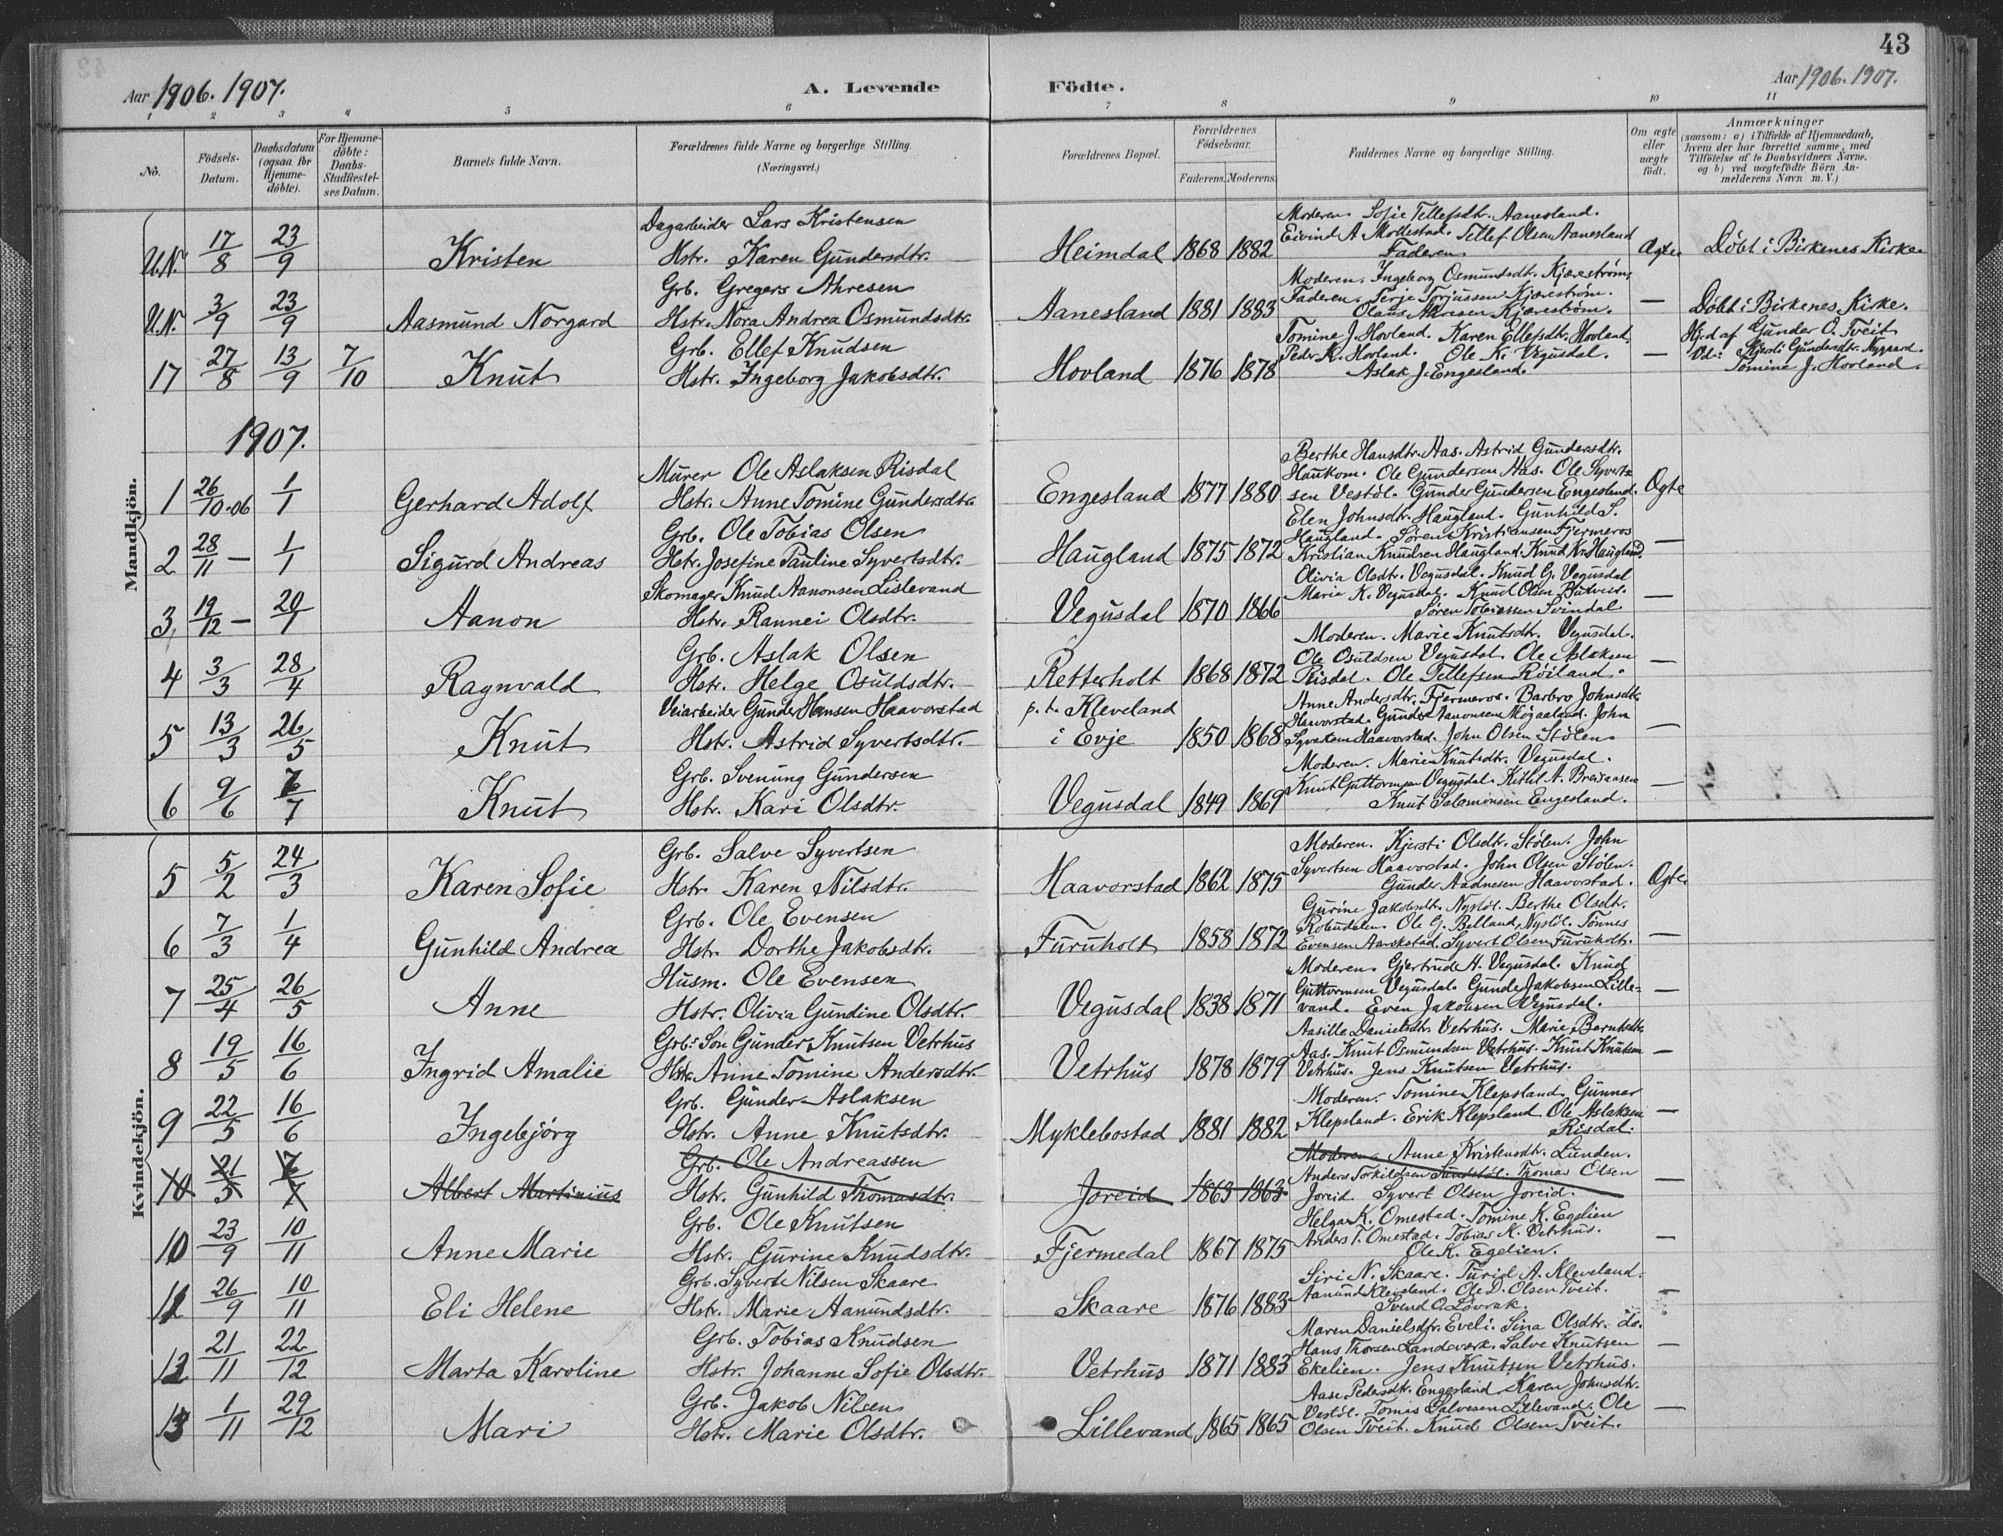 43
Aar 1906. 1907.
A. Levende Födte.
Aar 1906. 1907.
1 2 3 4 5 6 7 8 9 10 11
No.
Födsels-Datum.
Daabsdatum (ogsaa for Hjemme-döbte).
For Hjemme-döbte: Daabs-Stadfæstel-ses Datum.
Barnets fulde Navn.
Forældrenes fulde Navne og borgerlige Stilling.
(Næringsvei.)
Forældrenes Bopæl.
Forældrenes Födselsaar.
Faderens. Moderens.
Faddernes Navne og borgerlige Stilling.
Om ægte eller uægte födt.
Anmærkninger
(saasom: a) i Tilfælde af Hjemmedaab, hvem der har forrettet samme, med Tilföielse af to Daabsvidners Navne, og b) ved uægtefödte Börn Anmelderens Navn m. V.)
Mandkjön.
U.N. 17/8 23/9 Kristen
Dagarbeider Lars Kristensen
Hstr. Karen Gundersdtr.
Heimdal 1868 1882
Moderen. Sofie Tellefsdtr. Aanesland.
Eivind A. Mollestad. Tellef Olsen Aanesland
Faderen.
Ægte. Döbt i Birkenes Kirke.
U.N. 3/9 23/9 Aasmund Norgard
Grb. Gregers Ahresen
Hstr. Nora Andrea Osmundsdtr.
Aanesland 1881 1883
Moderen. Ingeborg Osmundsdt. Kjærestrøm,
Faderen. Terje Torjussen Kjærestrøm.
Olaus Ahresen Kjærestrøm.
— Döbt i Birkenes Kirke.
17 27/8 13/9 7/10 Knut
Grb. Ellef Knudsen
Hstr. Ingeborg Jakobsdtr.
Hovland 1876 1878
Tomine J. Hovland. Karen Ellefsdtr. Hovland,
Peder K. Hovland. Ole K. Vegusdal.
Aslak J. Engesland.
— Hj.d af Gunder O. Tveit
Vd: Kjersti Gundersdtr. Nygaard.
Tomine J. Hovland.
1907.
1 26/10-06 1/1 Gerhard Adolf
Murer Ole Aslaksen Risdal
Hstr. Anne Tomine Gundersdtr.
Engesland 1877 1880
Berthe Hansdtr. Aas. Astrid Gundersdtr.
Haukom. Ole Gundersen Aas. Ole Syvert-
sen Vestöl. Gunder Gundersen Engesland.
Ægte
2 28/11 — 1/1 Sigurd Andreas
Grb. Ole Tobias Olsen
Hstr. Josefine Pauline Syvertsdtr.
Haugland 1875 1872
Elen Johnsdtr. Haugland. Gunhild S.
Haugland. Sören Kristiansen Fjermeros
Kristian Knudsen Haugland. Knud Kr. Haugland.
—
3 19/12 — 20/1 Aanon
Skomager Knud Aanonsen Lislevand
Hstr. Rannei Olsdtr.
Vegusdal 1870 1866
Olivia Olsdtr. Vegusdal. Knud G. Vegusdal
Marie K. Vegusdal. Knud Olsen
Sören Tobiassen Svindal
—
4 3/3 28/4 Ragnvald
Grb. Aslak Olsen
Hstr. Helge Osuldsdtr.
Retterholt 1868 1872
Moderen. Marie Knutsdtr. Vegusdal.
Ole Osuldsen Vegusdal. Ole Aslaksen
Risdal. Ole Tellefsen Röiland.
—
5 13/3 26/5 Knut
Veiarbeider Gunder Hansen Haavorstad
Hstr. Astrid Syvertsdtr.
p. t. Kleveland
i Evje 1850 1868
Anne Andersdtr. Fjermeros. Barbro Johnsdtr.
Haavorstad. Gunder Aanonsen John
Syvertsen Haavorstad. John Olsen Stölen.
—
6 9/6 7/7 Knut
Grb. Svenung Gundersen
Hstr. Kari Olsdtr.
Vegusdal 1849 1869
Moderen. Marie Knutsdtr. Vegusdal.
Knut Guttormsen Vegusdal. Kittil A.
Knut Salomonsen Engesland.
—
Kvindekjön.
5 5/2 24/3 Karen Sofie
Grb. Salve Syvertsen
Hstr. Karen Nilsdtr.
Haavorstad 1862 1875
Moderen. Kjersti Olsdtr. Stölen. John
Syvertsen Haavorstad. John Olsen Stölen.
Gunder Aadnesen Haavorstad.
Ægte.
6 7/3 1/4 Gunhild Andrea
Grb. Ole Evensen
Hstr. Dorthe Jakobsdtr.
Furuholt 1858 1872
Gurine Jakobsdtr. Nystöl. Berthe Olsdtr.
Robudalen. Ole G. Belland, Nystöl. Tönnes
Evensen Aarikstad. Syvert Olsen Furuholt.
—
7 25/4 26/5 Anne
Husm. Ole Evensen
Hstr. Olivia Gundine Olsdtr.
Vegusdal 1838 1871
Moderen. Gjertrude H. Vegusdal. Knud
Guttormsen Vegusdal. Gunde Jakobsen Lille-
vand. Even Jakobsen Vegusdal.
—
8 19/5 16/6 Ingrid Amalie
Grb: Sön Gunder Knutsen Vetrhus
Hstr. Anne Tomine Andersdtr.
Vetrhus 1878 1879
Aasille Danielsdtr. Vetrhus. Marie Berntsdtr.
Aas. Knut Osmundsen Vetrhus. Knut Knutsen
Vetrhus. Jens Knutsen Vetrhus.
—
9 22/5 16/6 Ingebjörg
Grb. Gunder Aslaksen
Hstr. Anne Knutsdtr.
Myklebostad 1881 1882
Moderen. Tomine Klepsland. Gunnar
Klepsland. Erik Klepsland. Ole Aslaksen
Risdal.
—
10 21/5 7/7 Albert Martinius
Grb. Ole Andreassen
Hstr. Gunhild Thomasdtr.
Joreid 1863 1863
Moderen. Anne Kristensdtr. Lunden.
Anders Torkildsen Sundstöl. Thomas Olsen
Joreid. Syvert Olsen Joreid.
10 23/9 10/11 Anne Marie
Grb. Ole Knutsen
Hstr. Gurine Knudsdtr.
Fjermedal 1867 1875
Helga K. Omestad. Tomine K. Egelien
Anders T. Omestad. Tobias K. Vetrhus.
Ole K. Egelien.
—
11 26/9 10/11 Eli Helene
Grb. Syvert Nilsen Skaare
Hstr. Marie Aanundsdtr.
Skaare 1876 1883
Siri N. Skaare. Turid A. Kleveland.
Aanund Kleveland. Ole D. Olsen Tveit.
Svend O. Lövrak.
—
12 21/11 22/12 Marta Karoline
Grb. Tobias Knudsen
Hstr. Johanne Sofie Olsdtr.
Vetrhus 1871 1883
Maren Danielsdtr. Eveli. Sina Olsdtr. do.
Hans Thorsen Landeværk. Salve Knutsen
Ekelien. Jens Knutsen Vetrhus.
—
13 1/11 29/12 Mari
Grb. Jakob Nilsen
Hstr. Marie Olsdtr.
Lillevand 1865 1865
Aase Pedersdtr. Engesland. Karen Johnsdtr.
Vestöl. Tomis Salvesen Lillevand. Ole
Olsen Tveit. Knud Olsen Tveit.
—